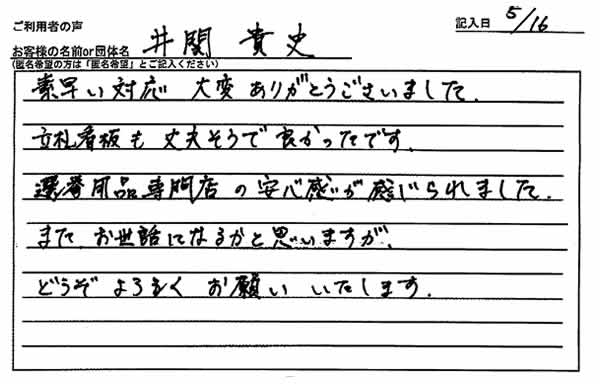 ご利用者の声
記入日 5/16
お客様の名前or団体名 井関 貴史
(匿名希望の方は「匿名希望」とご記入ください)
素早い対応 大変ありがとうございました。
立札看板も丈夫そうで良かったです。
選挙用品専門店の安心感が感じられました。
また、お世話になるかと思いますが、
どうぞよろしくお願いいたします。